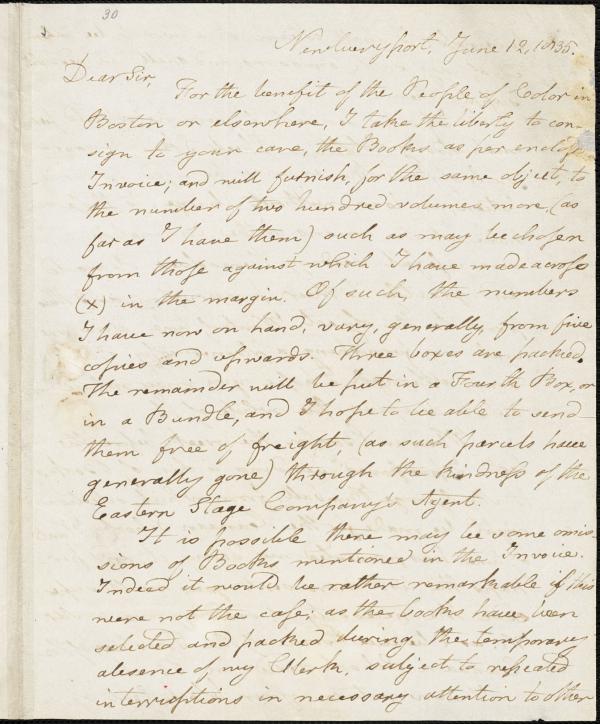 30
Newburyport, June 12, 1835.
Dear Sir,
For the benefit of the People of Color in
Boston or elsewhere, I take the liberty to con-
sign to your care, the Books as per enclos
Invoice; and will furnish, for the same object, to
the number of two hundred volumes more, (as
far as I have them) such as may be chosen
from those against which I have made a cross
(x) in the margin. Of such, the numbers
I have now on hand, vary, generally from five
copies and upwards. Three boxes are packed.
The remainder will be put in a Fourth Box, or
in a Bundle, and I hope to be able to send
them free of freight, (as such parcels have
generally gone) through the kindness of the
Eastern Stage Company's Agent.
It is possible there may be some omis-
sions of Books mentioned in the Invoice.
Indeed it would be rather remarkable if this
were not the case; as the books have been
selected and packed during the temporary
absence of my Clerk, subject to repeated
interruptions in necessary attention to other